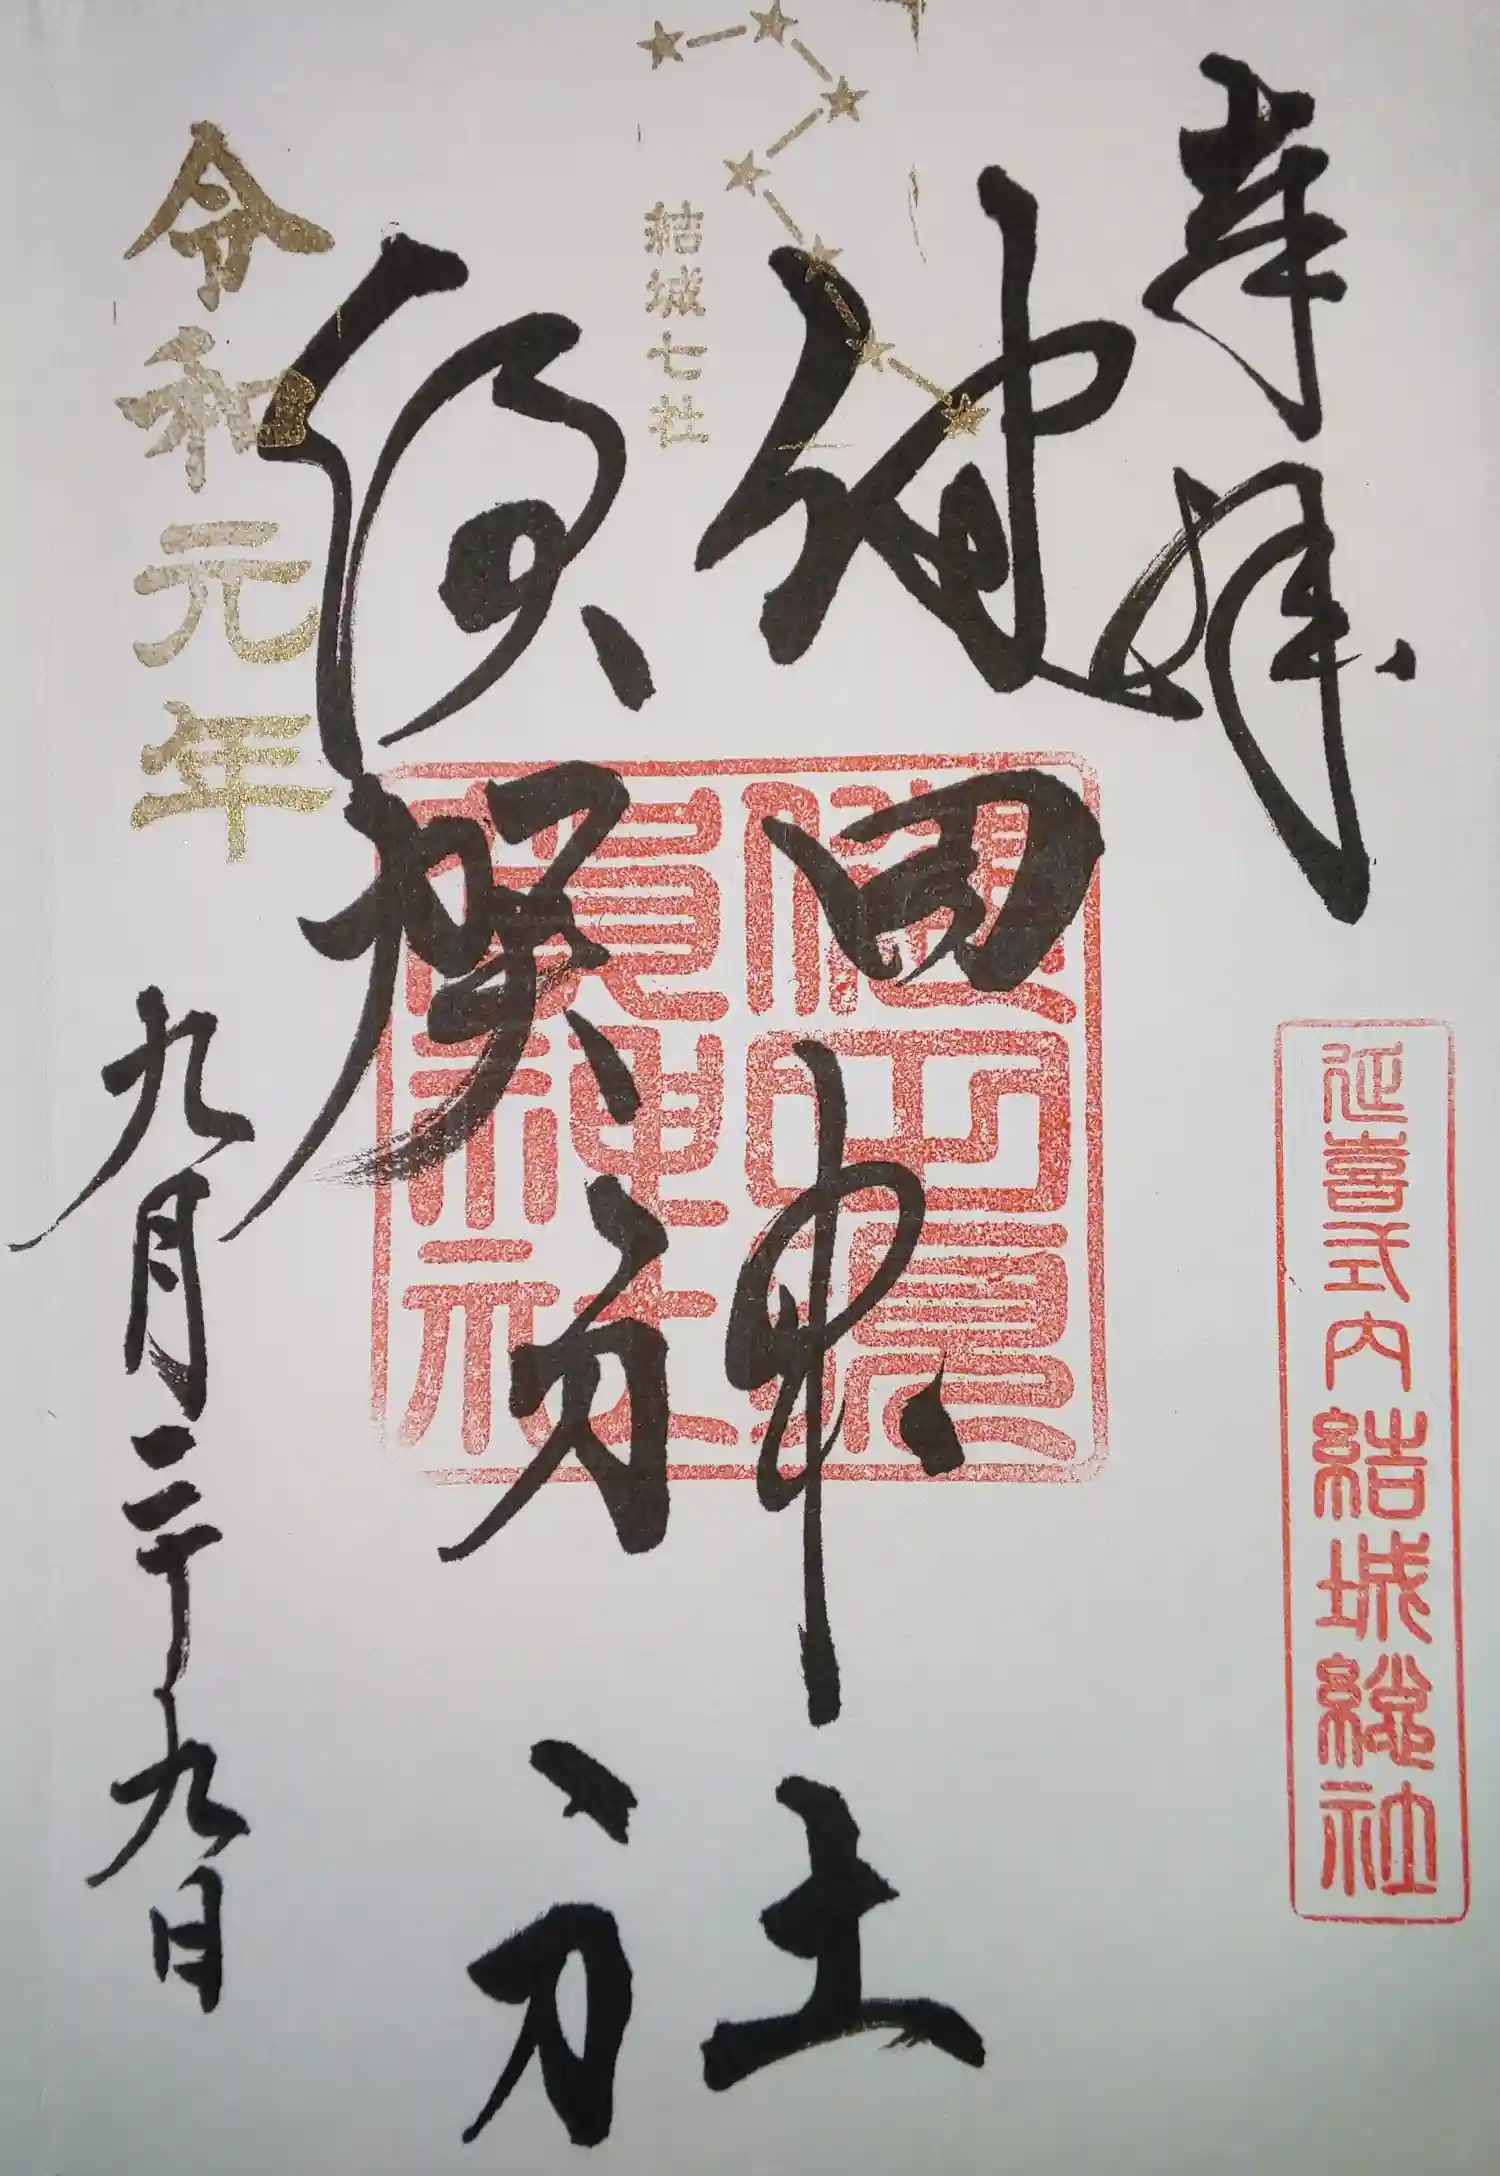 奉拝
延喜式内結城總社
健田
須賀
神社
健田須賀神社
結城七社
令和元年
九月二十九日